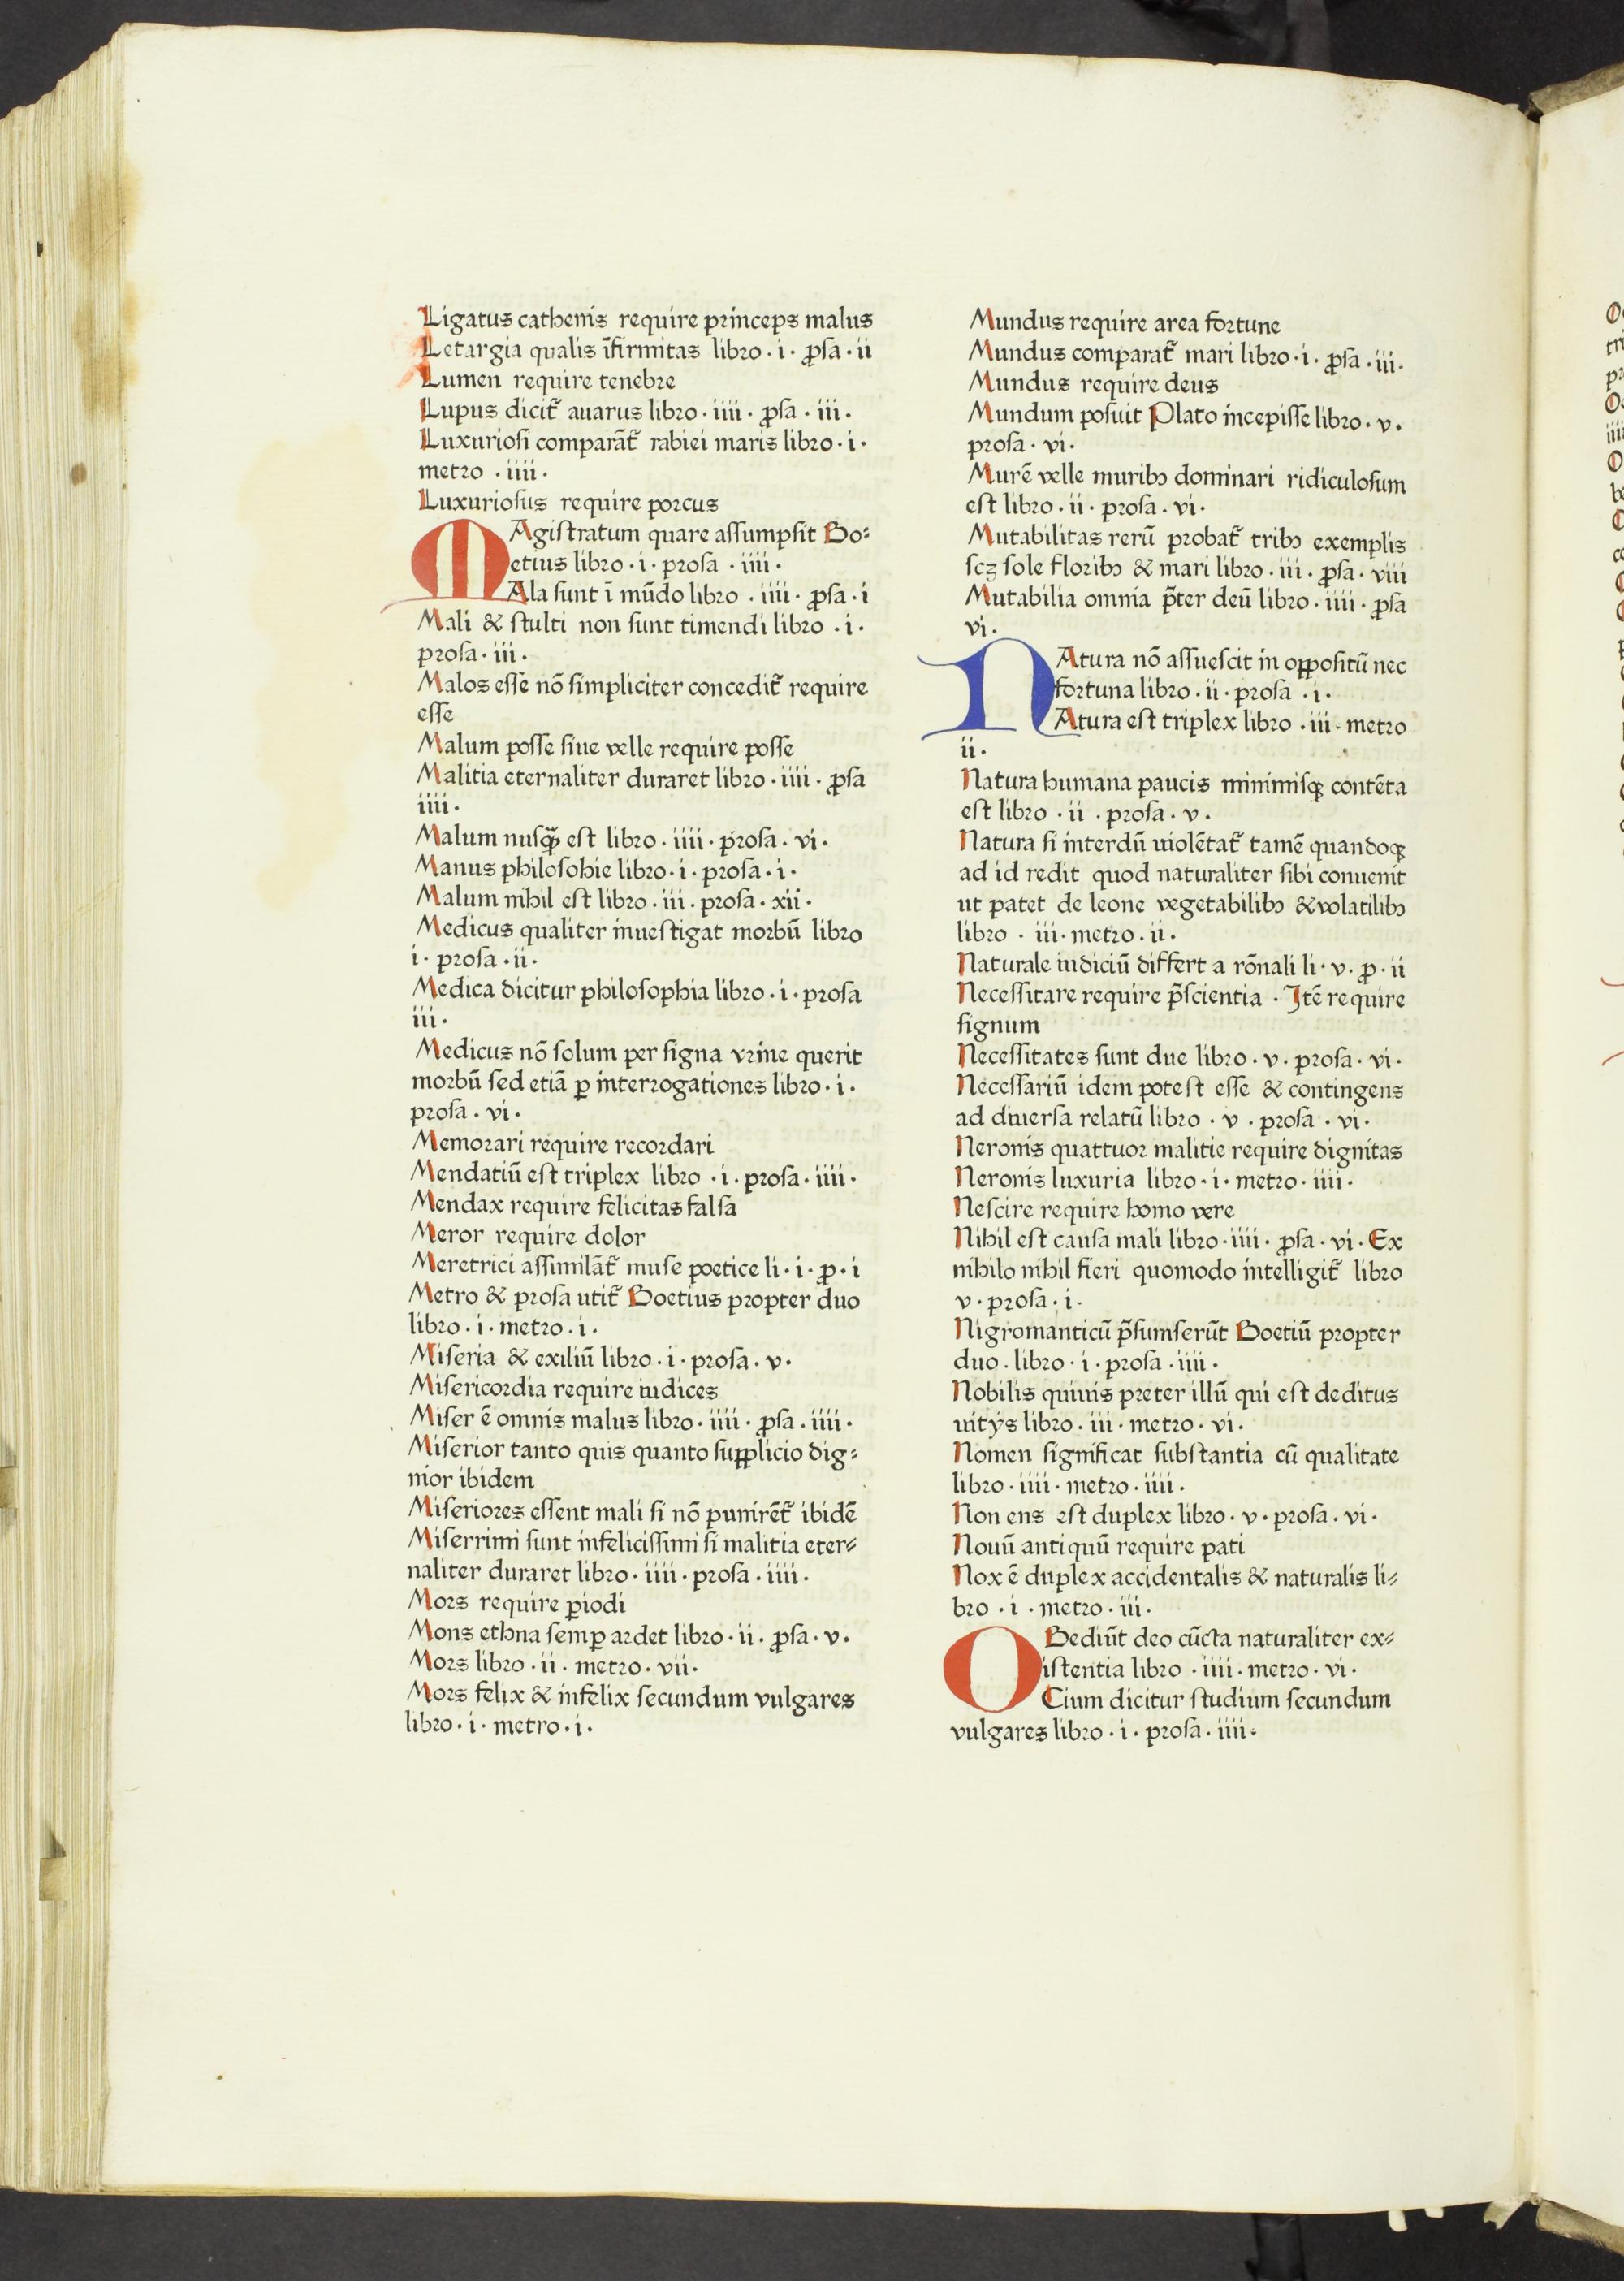 Ligatus cathenis require princeps malus
Letargia qualis īfirmitas libro · i · ꝓsa · ii
Lumen require tenebre
Lupus dicit᷑ auarus libro · iiii · ꝓsa · iii ·
Luxuriosi comparāt᷑ rabiei maris libro · i ·
metro · iiii ·
Luxuriosus require porcus
MAgistratum quare assumpsit Bo⸗
etius libro · i · prosa · iiii ·
Ala sunt ī mūdo libro · iiii · ꝓsa · i
Mali & stulti non sunt timendi libro · i ·
prosa · iii ·
Malos esse nō simpliciter concedit᷑ require
esse
Malum posse siue velle require posse
Malitia eternaliter duraret libro · iiii · ꝓsa
iiii ·
Malum nusꝙ̃ est libro · iiii · prosa · vi ·
Manus philosohie libro · i · prosa · i ·
Malum nihil est libro · iii · prosa · xii ·
Medicus qualiter inuestigat morbū libro
i · prosa · ii ·
Medica dicitur philosophia libro · i · prosa
iii ·
Medicus nō solum per signa vrine querit
morbū sed etiā ꝑ interrogationes libro · i ·
prosa · vi ·
Memorari require recordari
Mendatiū est triplex libro · i · prosa · iiii ·
Mendax require felicitas falsa
Meror require dolor
Meretrici assimilāt᷑ muse poetice li · i · ꝓ · i
Metro & prosa utit᷑ Boetius propter duo
libro · i · metro · i ·
Miseria & exiliū libro · i · prosa · v ·
Misericordia require iudices
Miser ē omnis malus libro · iiii · ꝓsa · iiii ·
Miserior tanto quis quanto supplicio dig⸗
nior ibidem
Miseriores essent mali si nō punirēt᷑ ibidē
Miserrimi sunt infelicissimi si malitia eter⸗
naliter duraret libro · iiii · prosa · iiii ·
Mors require ꝑiodi
Mons ethna semꝑ ardet libro · ii · ꝓsa · v ·
Mors libro · ii · metro · vii ·
Mors felix & infelix secundum vulgares
libro · i · metro · i ·
Mundus require area fortune
Mundus comparat᷑ mari libro · i · ꝓsa · iii ·
Mundus require deus
Mundum posuit Plato incepisse libro · v ·
prosa · vi ·
Murē velle muribꝫ dominari ridiculosum
est libro · ii · prosa · vi ·
Mutabilitas rerū probat᷑ tribꝫ exemplis
scꝫ sole floribꝫ & mari libro · iii · ꝓsa · viii
Mutabilia omnia p̄ter deū libro · iiii · ꝓsa
vi ·
NAtura nō assuescit in oppositū nec
fortuna libro · ii · prosa · i ·
Atura est triplex libro · iii · metro
ii ·
Natura humana paucis minimisqꝫ contēta
est libro · ii · prosa · v ·
Natura si interdū uiolētat᷑ tamē quandoqꝫ
ad id redit quod naturaliter sibi conuenit
ut patet de leone vegetabilibꝫ & volatilibꝫ
libro · iii · metro · ii ·
Naturale iudiciū differt a rōnali li · v · ꝓ · ii
Necessitare require p̄scientia · Itē require
signum
Necessitates sunt due libro · v · prosa · vi ·
Necessariū idem potest esse & contingens
ad diuersa relatū libro · v · prosa · vi ·
Neronis quattuor malitie require dignitas
Neronis luxuria libro · i · metro · iiii ·
Nescire require homo vere
Nihil est causa mali libro · iiii · ꝓsa · vi · Ex
nihilo nihil fieri quomodo intelligit᷑ libro
v · prosa · i ·
Nigromanticū p̄sumserūt Boetiū propter
duo · libro · i · prosa · iiii ·
Nobilis quiuis preter illū qui est deditus
uitÿs libro · iii · metro · vi ·
Nomen significat substantia cū qualitate
libro · iiii · metro · iiii ·
Non ens est duplex libro · v · prosa · vi ·
Nouū antiquū require pati
Nox ē duplex accidentalis & naturalis li⸗
bro · i · metro · iii ·
OBediūt deo cūcta naturaliter ex⸗
istentia libro · iiii · metro · vi ·
Cium dicitur studium secundum
vulgares libro · i · prosa · iiii ·